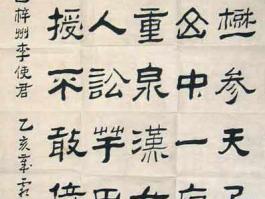 樹参天千
山中一夜
重泉漢女
人訟芋田
授不敢倚
梓州李使君 乙亥歲